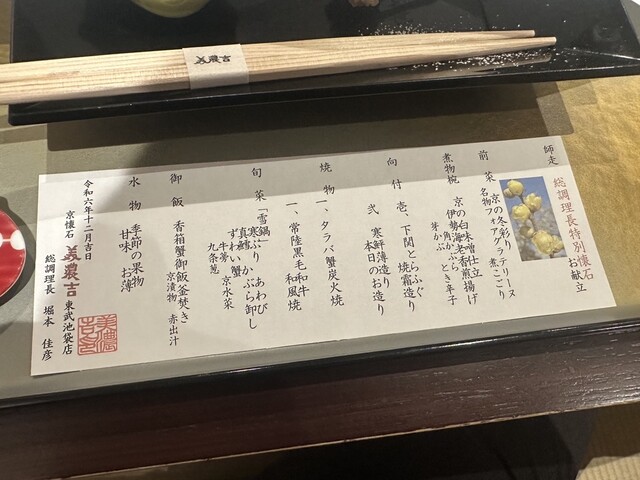 美濃吉
師走
総調理長特別懐石
お献立
前菜 京の冬彩り
名物フォアグラテリーヌ
煮こごり
煮物椀 京の白味噌仕立
伊勢海老香煎揚げ
角かぶら とき辛子
芽かぶ
向付 壱、下関とらふぐ
焼霜造り
弐、寒鮮薄造り
本日のお造り
焼物 一、タラバ蟹炭火焼
一、常陸黒毛和牛
和風焼
旬菜 「雪鍋」
寒ぶり あわび
真鱈 かぶら卸し
ずわい蟹
牛蒡 京水菜
九条葱
御飯 香箱蟹御飯釜焚き
京漬物 赤出汁
水物 季節の果物
甘味 お薄
令和六年十二月吉日
京懐石 美濃吉 東武池袋店
総調理長 堀本 佳彦